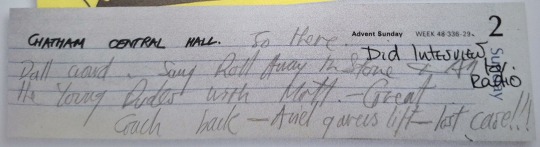 Advent Sunday WEEK 48 336-29 2
Sunday
CHATHAM CENTRAL HALL. So there. Did INTERVIEW
Dull crowd. Sang Roll Away The Stone & All for. RADIO
The Young Dudes with Mott. — Great
Coach back — Ariel gives lift — lost case!!!